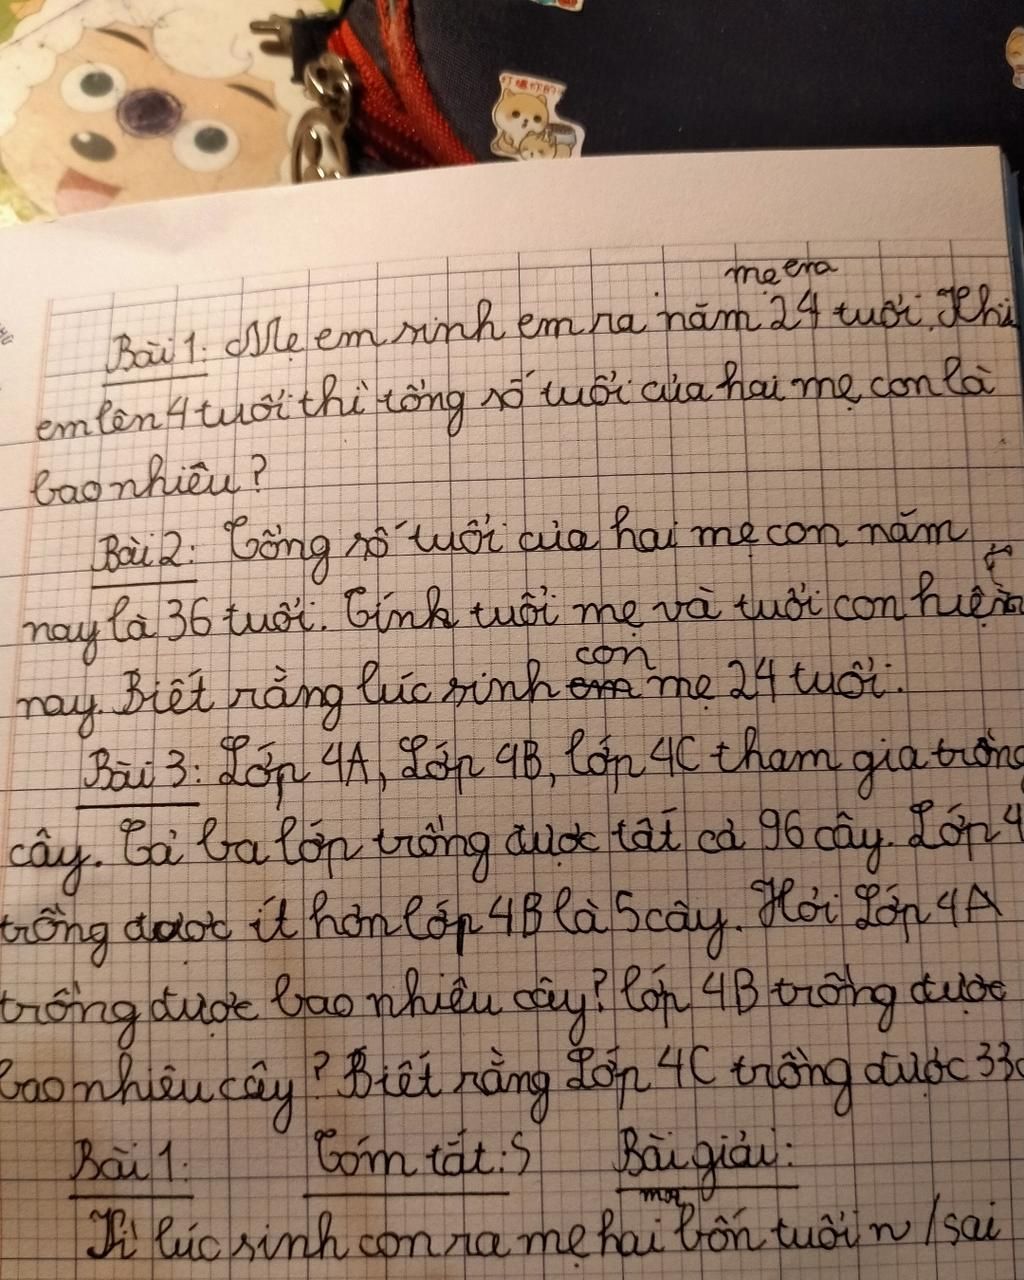 打嗝你的
mẹ em
Bài 1: Mẹ em sinh em ra năm 24 tuổi. Khi
em lên 4 tuổi thì tổng số tuổi của hai mẹ con là
bao nhiêu?
Bài 2: Tổng số tuổi của hai mẹ con năm
nay là 36 tuổi. Tính tuổi mẹ và tuổi con hiện
con
nay. Biết rằng lúc sinh em mẹ 24 tuổi.
Bài 3: Lớp 4A, Lớp 4B, lớp 4C tham gia trồng
cây. Cả ba lớp trồng được tất cả 96 cây. Lớp 4
trồng được ít hơn lớp 4B là 5 cây. Hỏi Lớp 4A
trồng được bao nhiêu cây? lớp 4B trồng được
bao nhiêu cây? Biết rằng Lớp 4C trồng được 33c
Bài 1: Tóm tắt: S Bài giải:
Vì lúc sinh con ra mẹ hai bốn tuổi n / sai